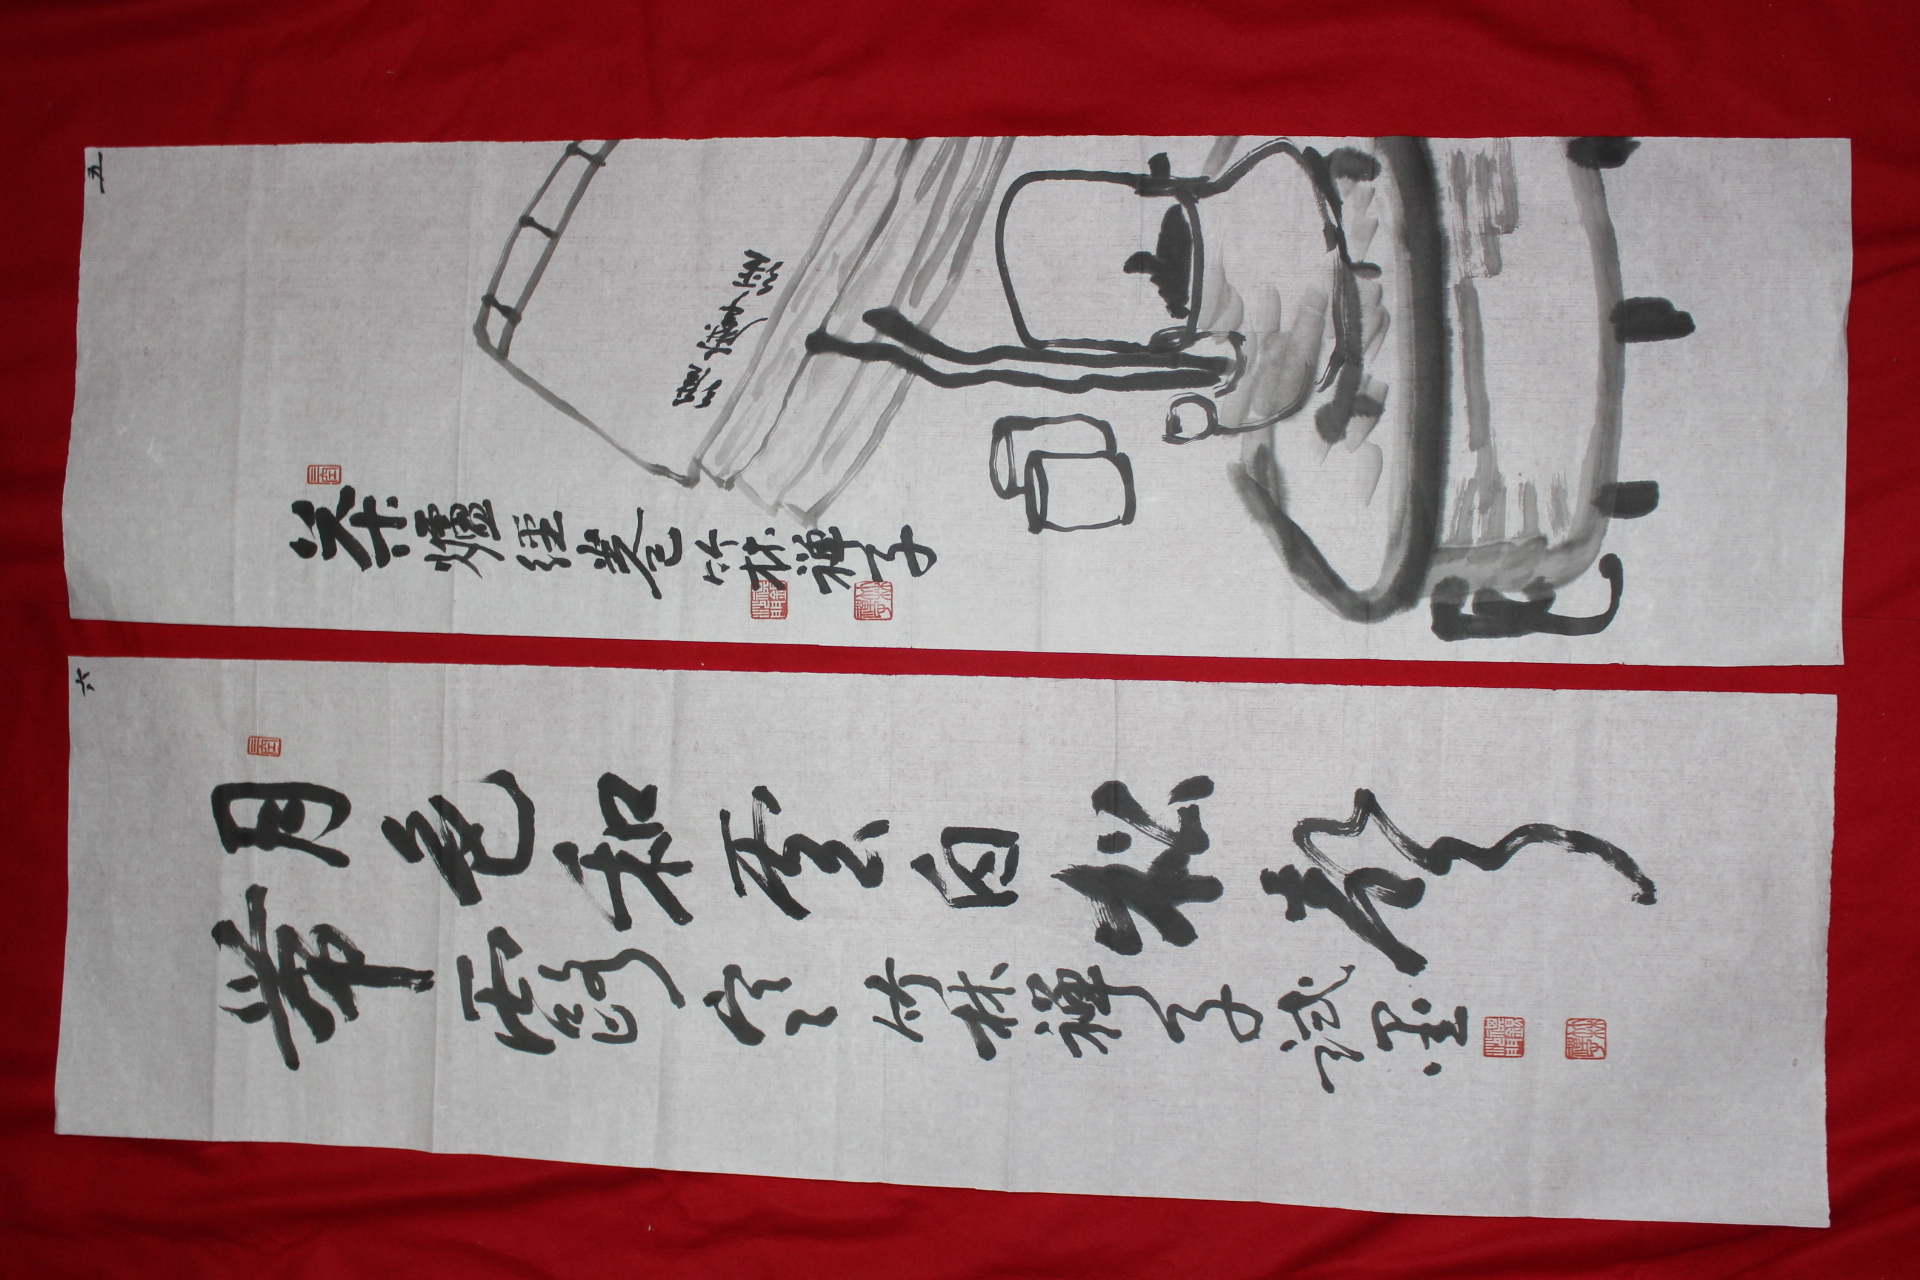 五
茶爐經卷竹林禪子
六
月色和雲白松聲
帶露寒竹林禪子試墨